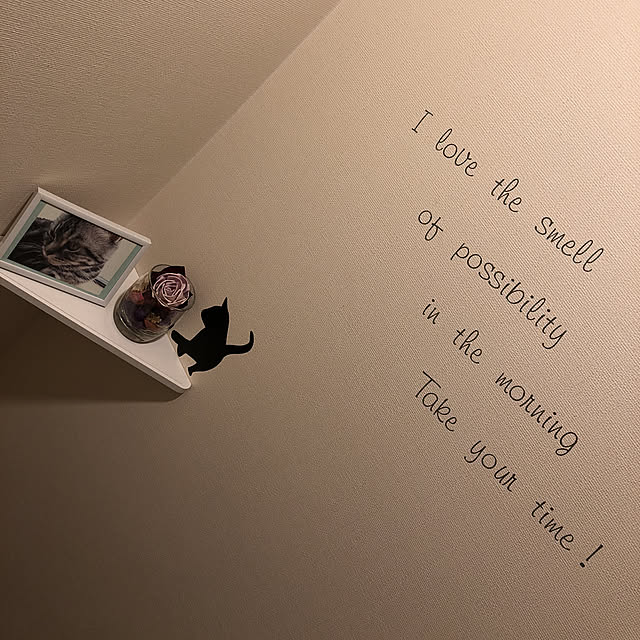 I love the smell
of possibility
in the morning
Take your time !